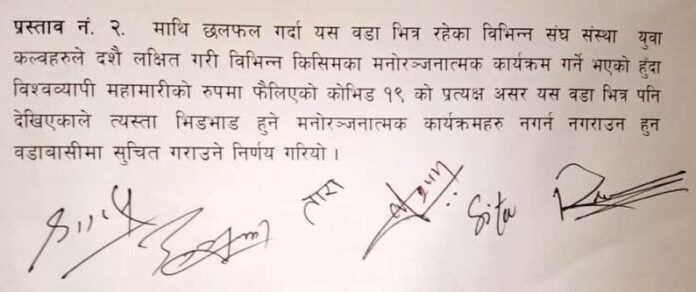 प्रस्ताव नं. २. माथि छलफल गर्दा यस वडा भित्र रहेका विभिन्न संघ संस्था युवा
कल्वहरुले दशै लक्षित गरी विभिन्न किसिमका मनोरञ्जनात्मक कार्यक्रम गर्ने भएको हुँदा
विश्वव्यापी महामारीको रुपमा फैलिएको कोभिड १९ को प्रत्यक्ष असर यस वडा भित्र पनि
देखिएकाले त्यस्ता भिडभाड हुने मनोरञ्जनात्मक कार्यक्रमहरु नगर्न नगराउन हुन
वडावासीमा सुचित गराउने निर्णय गरियो ।
तारा Sita